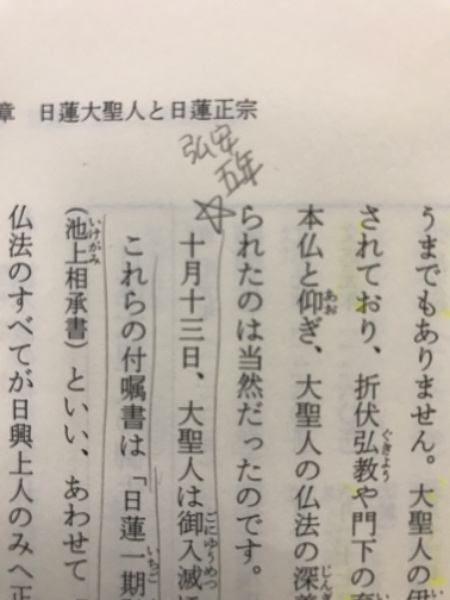 章 日蓮大聖人と日蓮正宗
弘安
五年
うまでもありません。大聖人の
されており、折伏弘教や門下の
本仏と仰ぎ、大聖人の仏法の深
られたのは当然だったのです。
☆十月十三日、大聖人は御入滅
これらの付嘱書は「日蓮一期
(池上相承書)といい、あわせて
仏法のすべてが日興上人のみへ正